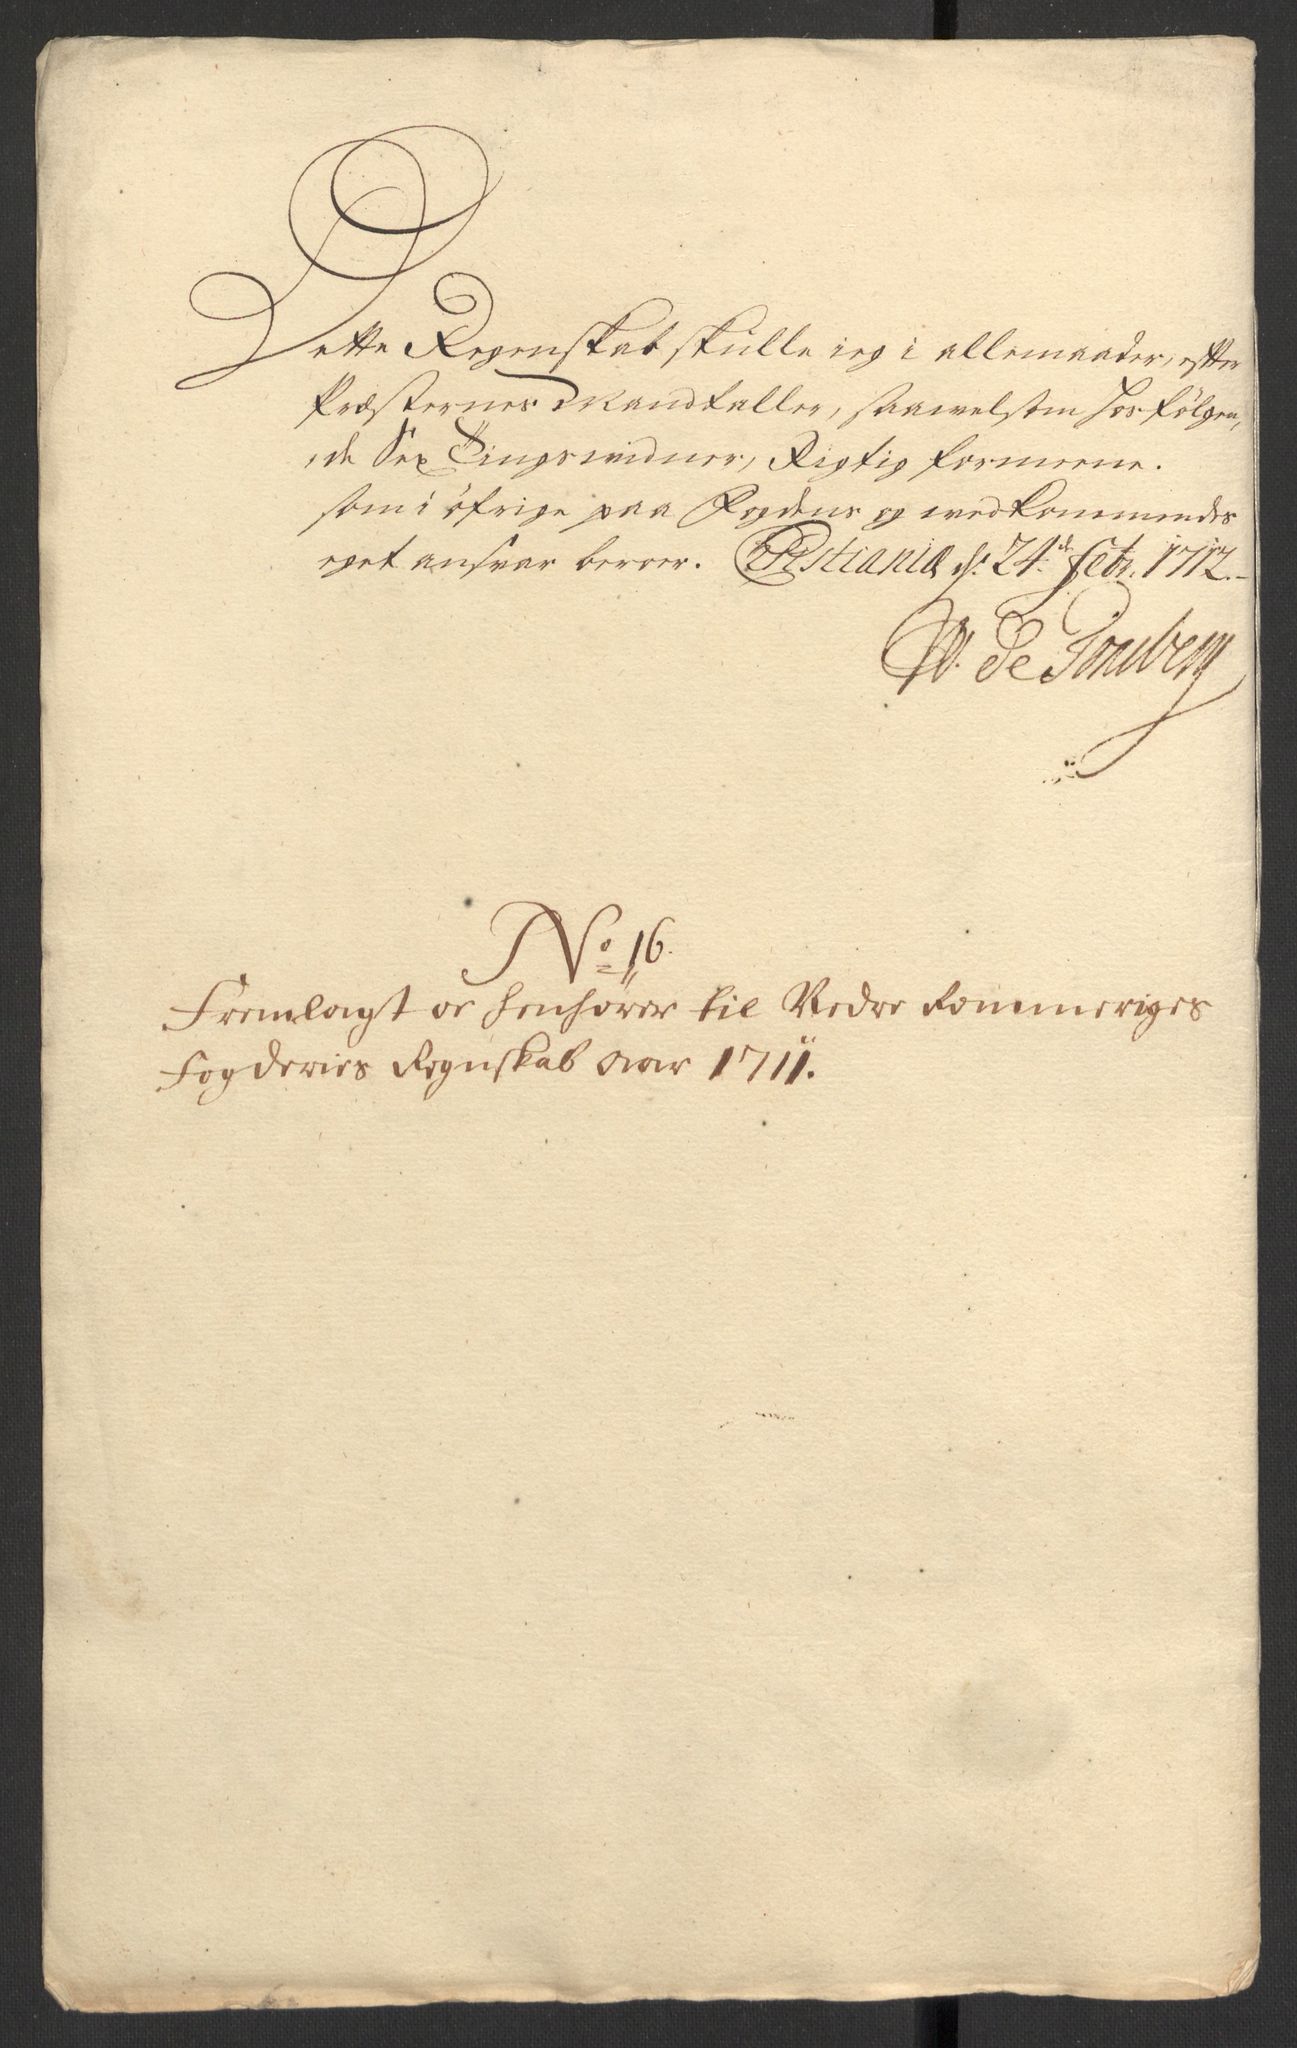 Dette Regenskab skulle ieg i allemaader, effter
Præsternes Mandtaller, saawelsom hosfölgen,
,de Sex Tingswidner, Rigtig formeene.
som i öfrige paa Fogdens og wedkommendes
eget ansvar beroer. Christiania d: 24.de Febr. 1712.
W. de Tonsberg
No 16.
Fremlagt oc henhörer til Nedre Rommeriges
Fogderies Regnskab Aar 1711.